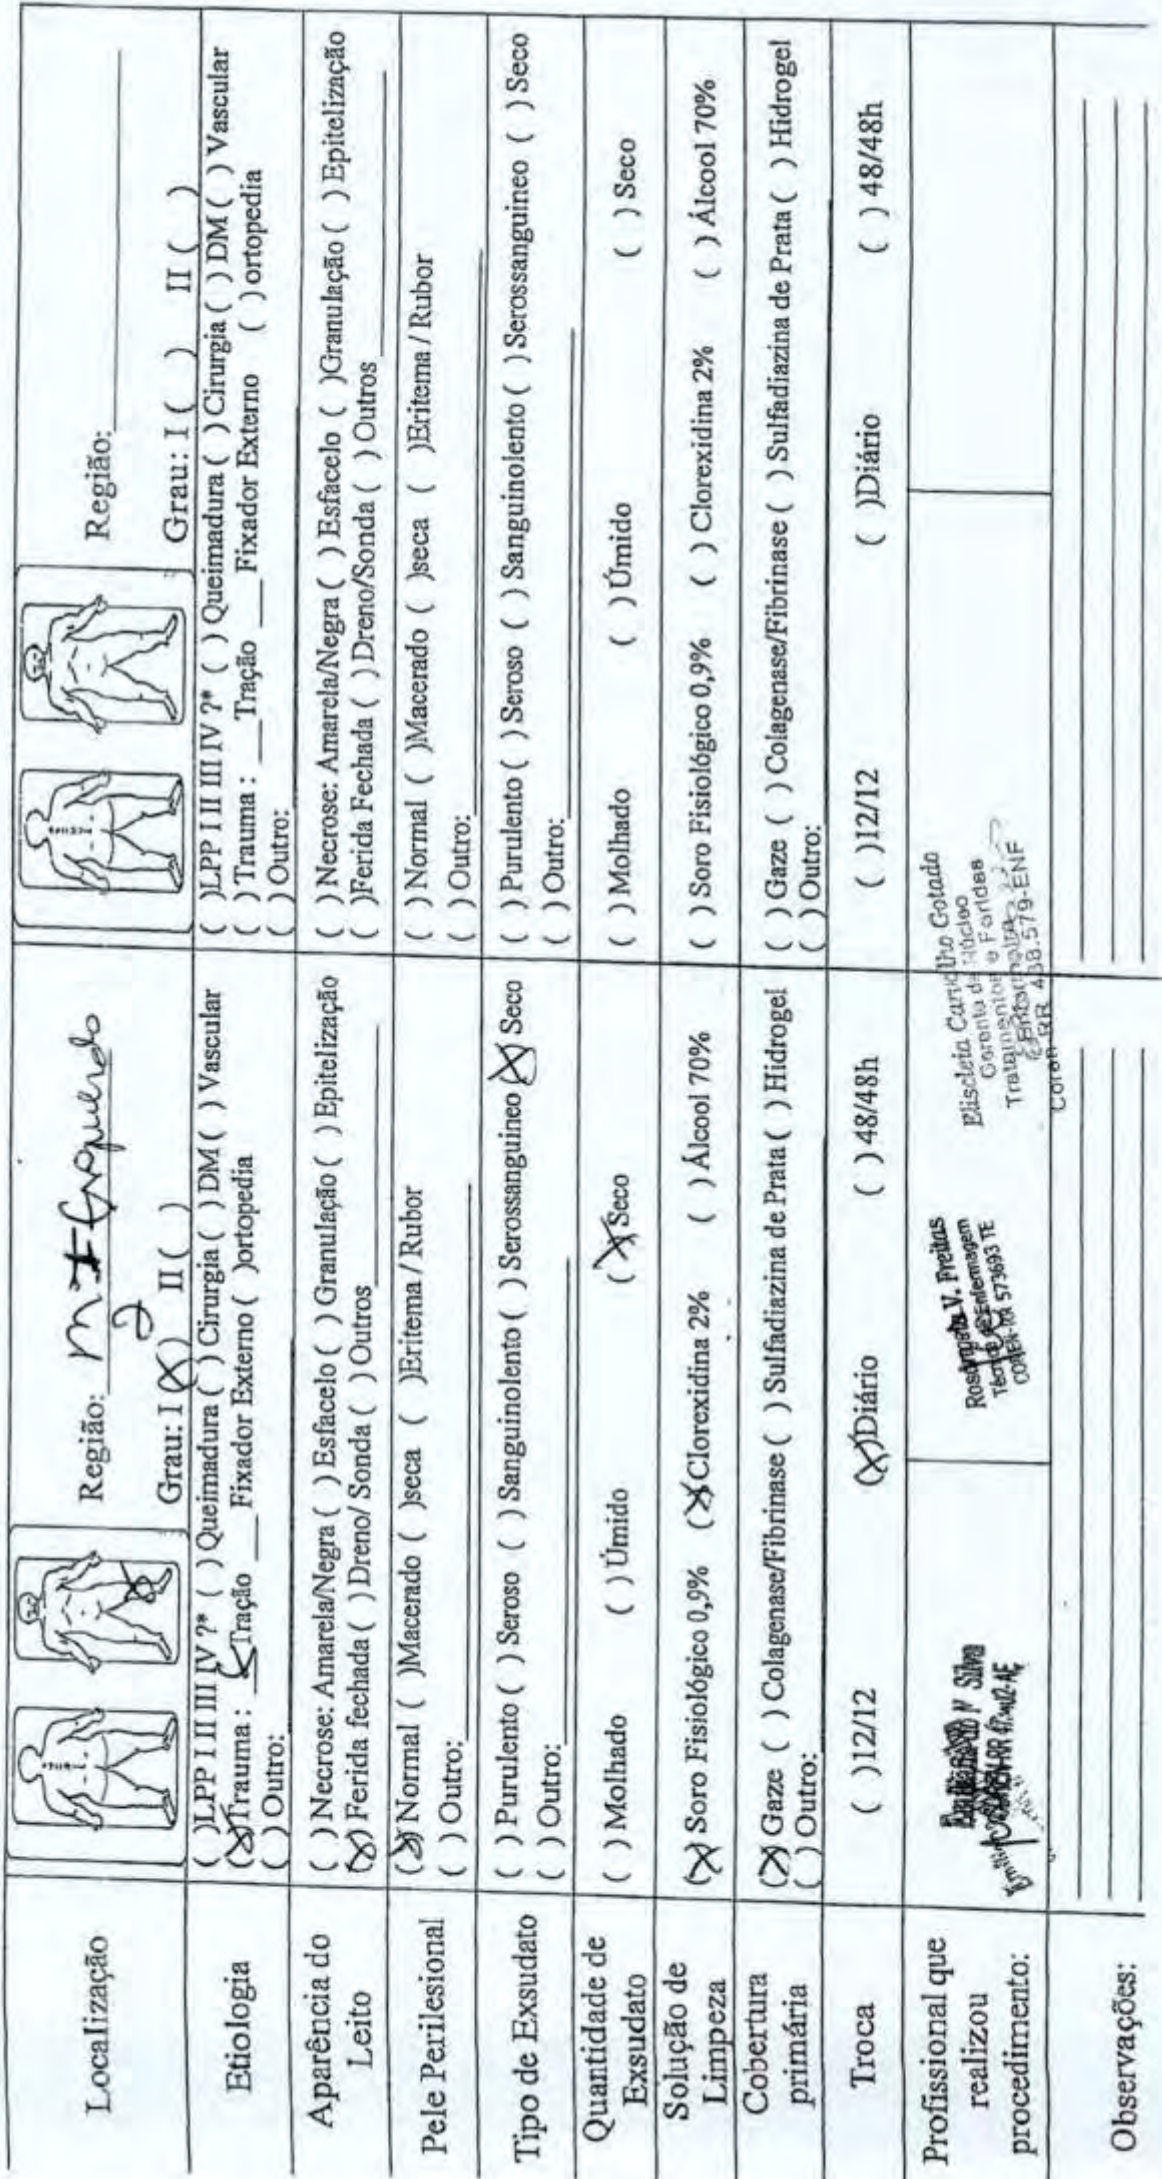 Localização
Região: M I Esquerdo
Grau: I (X) II ( )
Região:
Grau: I ( ) II ( )
Etiologia
( )LPP I II III IV ?* ( ) Queimadura ( ) Cirurgia ( ) DM ( ) Vascular
(X)Trauma : X Tração ___Fixador Externo ( )ortopedia
( ) Outro:
( )LPP I II III IV ?* ( ) Queimadura ( ) Cirurgia ( ) DM ( ) Vascular
( ) Trauma : ___Tração ___Fixador Externo ( ) ortopedia
( ) Outro:
Aparência do
Leito
( ) Necrose: Amarela/Negra ( ) Esfacelo ( ) Granulação ( ) Epitelização
(X) Ferida fechada ( ) Dreno/ Sonda ( ) Outros
( ) Necrose: Amarela/Negra ( ) Esfacelo ( )Granulação ( ) Epitelização
( )Ferida Fechada ( ) Dreno/Sonda ( ) Outros
Pele Perilesional
(X) Normal ( )Macerado ( )seca ( )Eritema / Rubor
( ) Outro:
( ) Normal ( )Macerado ( )seca ( )Eritema / Rubor
( ) Outro:
Tipo de Exsudato
( ) Purulento ( ) Seroso ( ) Sanguinolento ( ) Serossanguineo (X) Seco
( ) Outro:
( ) Purulento ( ) Seroso ( ) Sanguinolento ( ) Serossanguineo ( ) Seco
( ) Outro:
Quantidade de
Exsudato
( ) Molhado ( ) Úmido (X) Seco
( ) Molhado ( ) Úmido ( ) Seco
Solução de
Limpeza
(X) Soro Fisiológico 0,9% (X)Clorexidina 2% ( ) Álcool 70%
( ) Soro Fisiológico 0,9% ( ) Clorexidina 2% ( ) Álcool 70%
Cobertura
primária
(X) Gaze ( ) Colagenase/Fibrinase ( ) Sulfadiazina de Prata ( ) Hidrogel
( ) Outro:
( ) Gaze ( ) Colagenase/Fibrinase ( ) Sulfadiazina de Prata ( ) Hidrogel
( ) Outro:
Troca
( )12/12 (X)Diário ( ) 48/48h
( )12/12 ( )Diário ( ) 48/48h
Profissional que
realizou
procedimento:
Silva
V. Freitas
Técnica de Enfermagem
573693 TE
Gerente de Núcleo
Tratamento e Feridas
Enfermeira
Coren-RR 438.579-ENF
Observações: